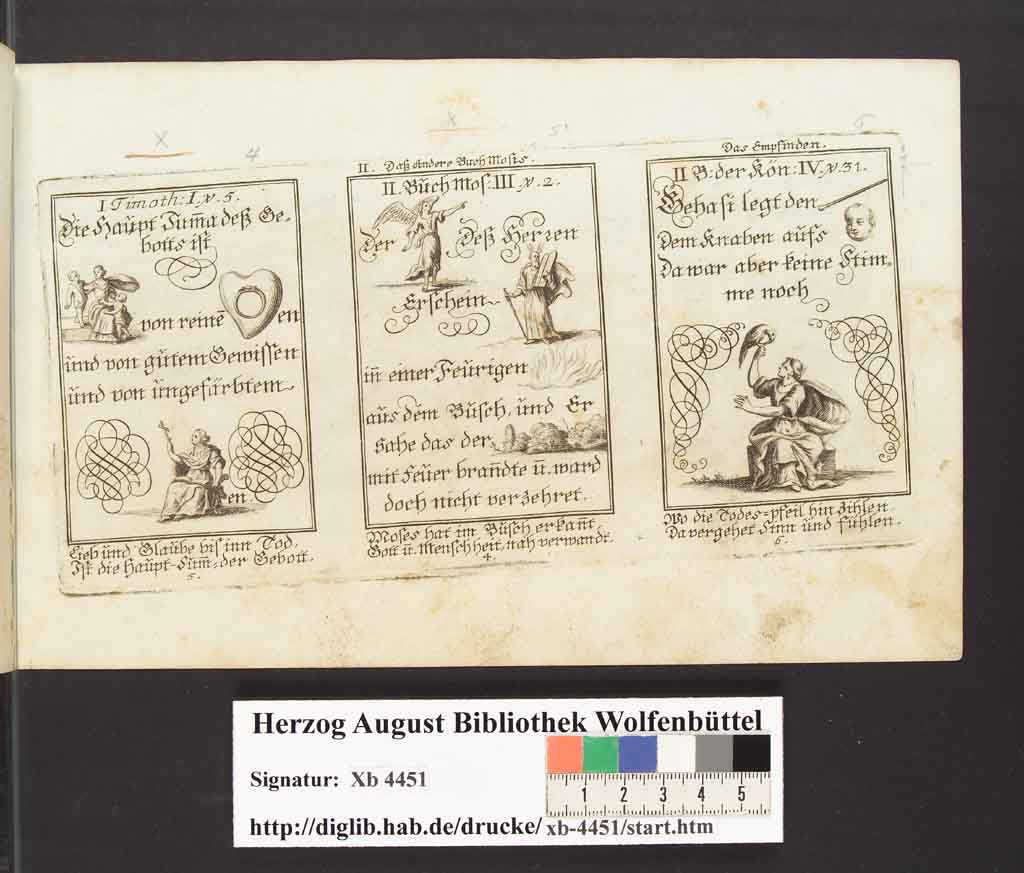 X
4
X
5
6
I Timoth: I, v. 5.
Die Haupt Sum̄a deß Ge-
botts ist
von reinē en
und von gutem Gewissen
und von ungefärbtem
en
Lieb und Glaube bis inn Tod,
Ist die Haupt-Sum̄: der Gebott.
5.
II. Daß Andere Buch Mosis.
II. Buch Mos: III v. 2.
Der Deß Herren
Erschein
in̄ einer Feurigen
aus dem Busch, und Er
sahe das der
mit Feuer bran̄dte ū. ward
doch nicht verzehret.
Moses hat im Busch erkan̄t
Gott ū. Menschheit, nah verwandt.
4.
Das Empfinden.
II B: der Kön: IV. v. 31.
Gehasi legt den
Dem Knaben aufs
Da war aber keine Stim-
me noch
Wo die Todes=pfeil hin zihlen
Da vergehet Sinn und fühlen.
6.
Herzog August Bibliothek Wolfenbüttel
Signatur: Xb 4451
1 2 3 4 5
http://diglib.hab.de/drucke/ xb-4451/start.htm